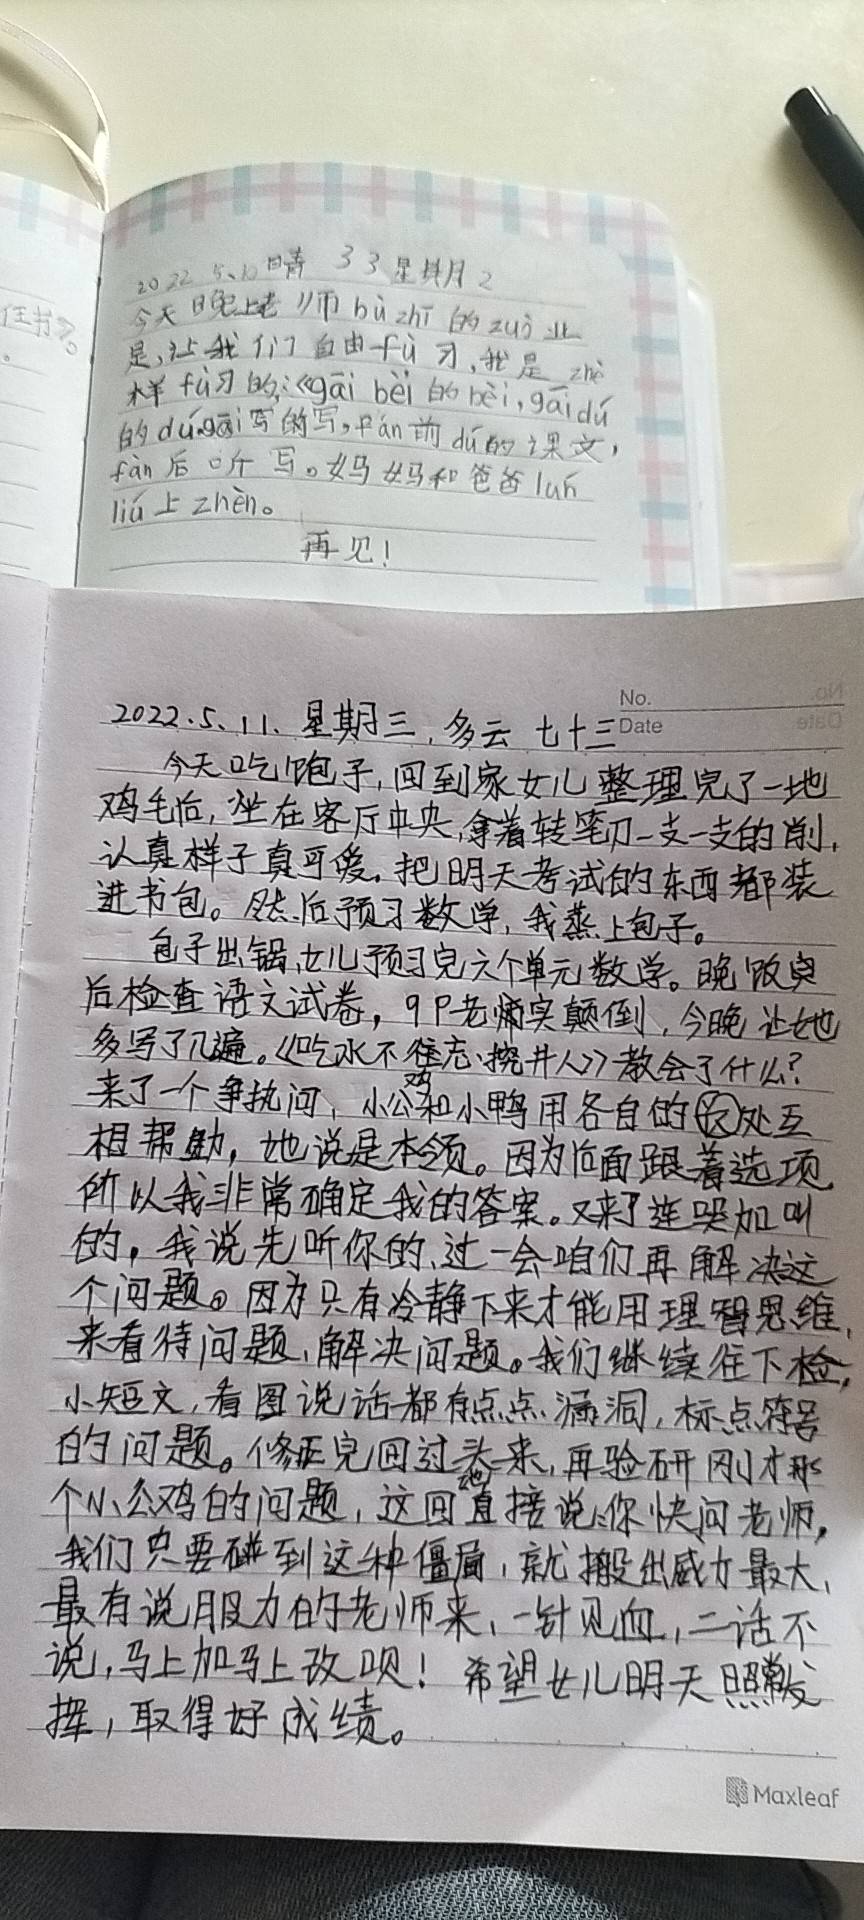 任书?。
2022 5、10 晴 33 星期2
今天晚上老师bù zhì的zuò业
是,让我们自由fù习,我是zhè
样fù习的:《gāi bèi的bèi,gāi dú
的dú,gāi写的写,fàn前dú的课文,
fàn后听写。妈妈和爸爸lún
liú上zhèn。
再见!
No.
Date
2022.5.11. 星期三,多云 七十三
今天吃饱子,回到家女儿整理完了一地
鸡毛后,坐在客厅中央,拿着转笔刀一支一支的削,
认真样子真可爱。把明天考试的东西都装
进书包。然后预习数学,我蒸上包子。
包子出锅,女儿预习完六个单元数学。晚饭
后检查语文试卷,9P老师实颠倒,今晚让她
多写了几遍。《吃水不忘挖井人》教会了什么?
来了一个争执问,小公鸡和小鸭用各自的长处互
相帮助,她说是本领。因为后面跟着选项,
所以我非常确定我的答案。又来了连哭加叫
的,我说先听你的,过一会咱们再解决这
个问题。因为只有冷静下来才能用理智思维,
来看待问题,解决问题。我们继续往下检,
小短文,看图说话都有点点漏洞,标点符号
的问题。修正完回过头来,再验研刚才那
个小公鸡的问题,这回她直接说:你快问老师,
我们只要碰到这种僵局,就搬出威力最大,
最有说服力的老师来,一针见血,二话不
说,马上加马上改呗!希望女儿明天照常发
挥,取得好成绩。
Maxleaf